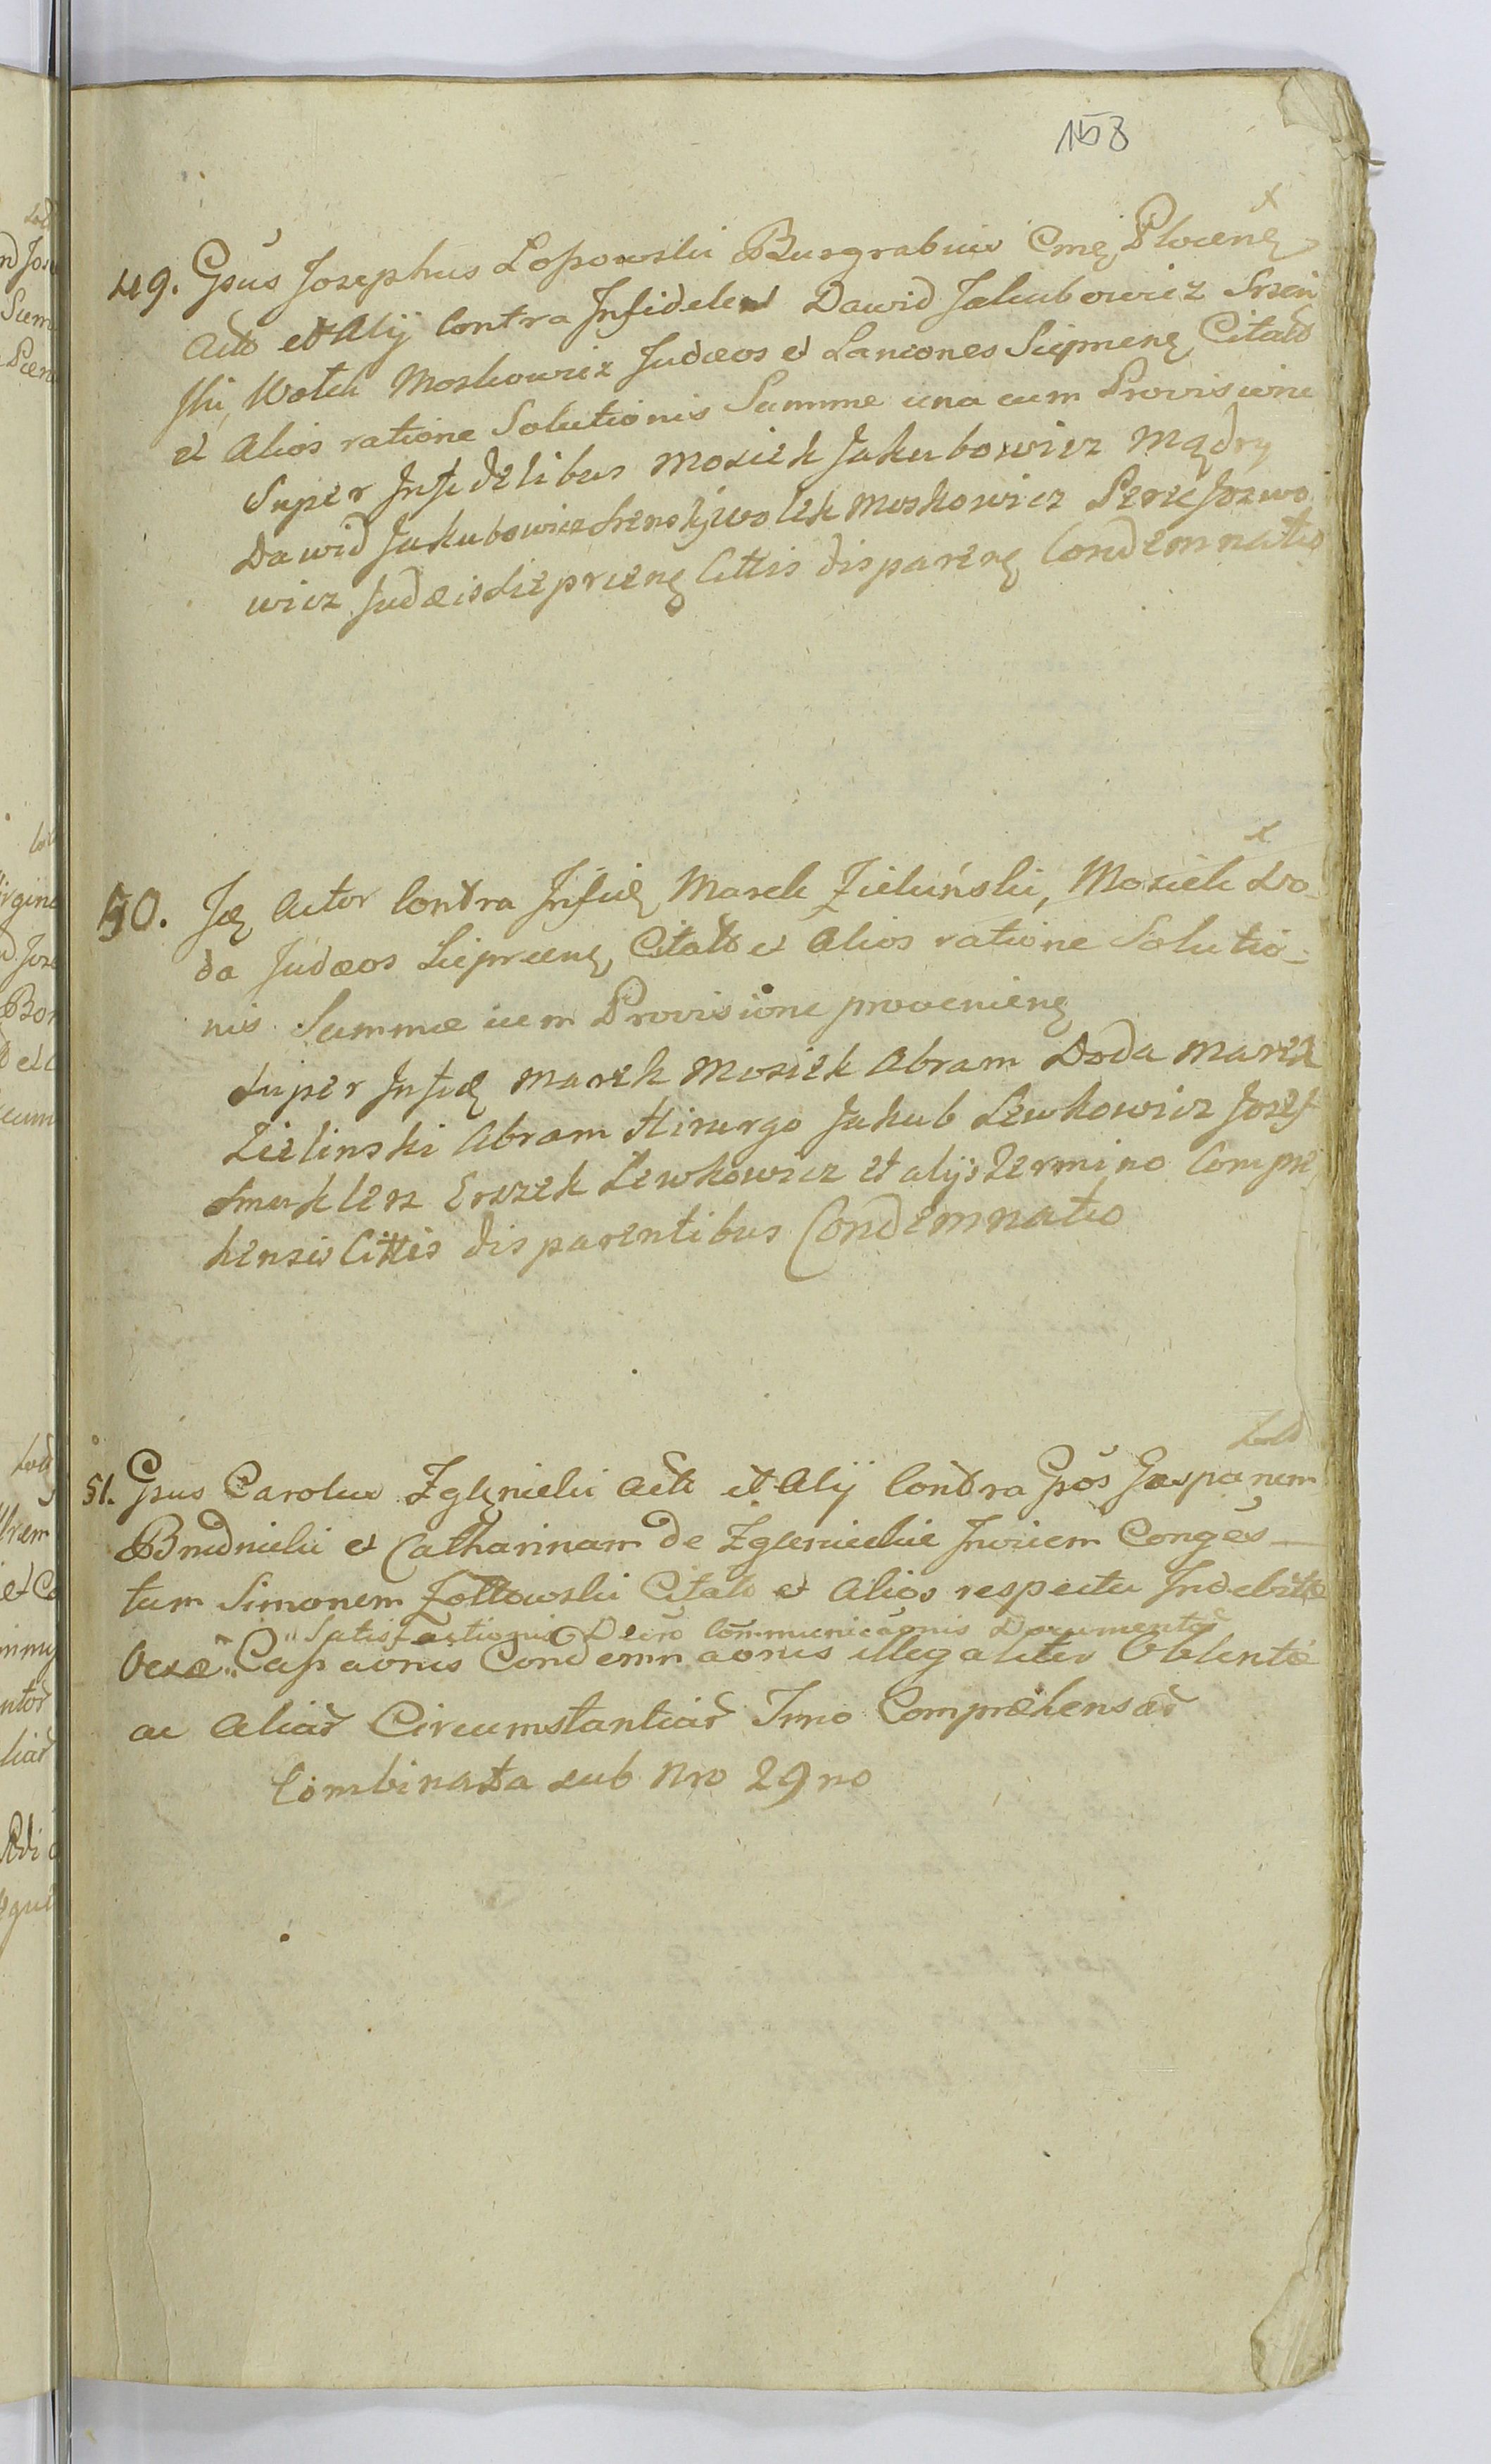 158
x
49. Gsus Josephus Lossowski Burgrabius Cmę Plocenę
Acto et Alij Contra Infideles Dawid Jakubowicz Srzen
ski, Wolek Moskowicz Judæos et Laniones Siepmenę Citato
et Alios ratione Solutionis Summe una cum Provisione
Super Infidelibus Mosiek Jakubowicz Mądry
Dawid Jakubowicz Srenskj Wolek Moskowicz Jozwo
wicz Judæis Sieprcenę Cittis disparenę Condemnatio
x
50. Actor Contra Infidę Marek Zieliński, Mosiek Do-
da Judæos Sieprcenę Citato et Alios ratione Solutio-
nis Summæ cum Provisione provenienę
Super Infidę Marek Mosiek Abram Doda Marek
Zielinski Abram Hirurgo Jakub Lewkowicz Josef
Smuklerz Erszek Lewkowicz et alijs Termino Compre
hensis Cittis disparentibus Condemnatio
51. Gsus Carolus Zglenicki Acto et Alij Contra Gsos Gasparem
Brudnicki et Catharinam de Zglenickie Invicem Conges
tum Simonem Zoltowski Citato et Alios respectu Indebite
Satisfactionis Communicaonis Documentor
Cassaonis Condemnaonis illegaliter Obtente
ac Aliar Circumstantiar Tmno Comprehensar
Combinata sub Nro 29no